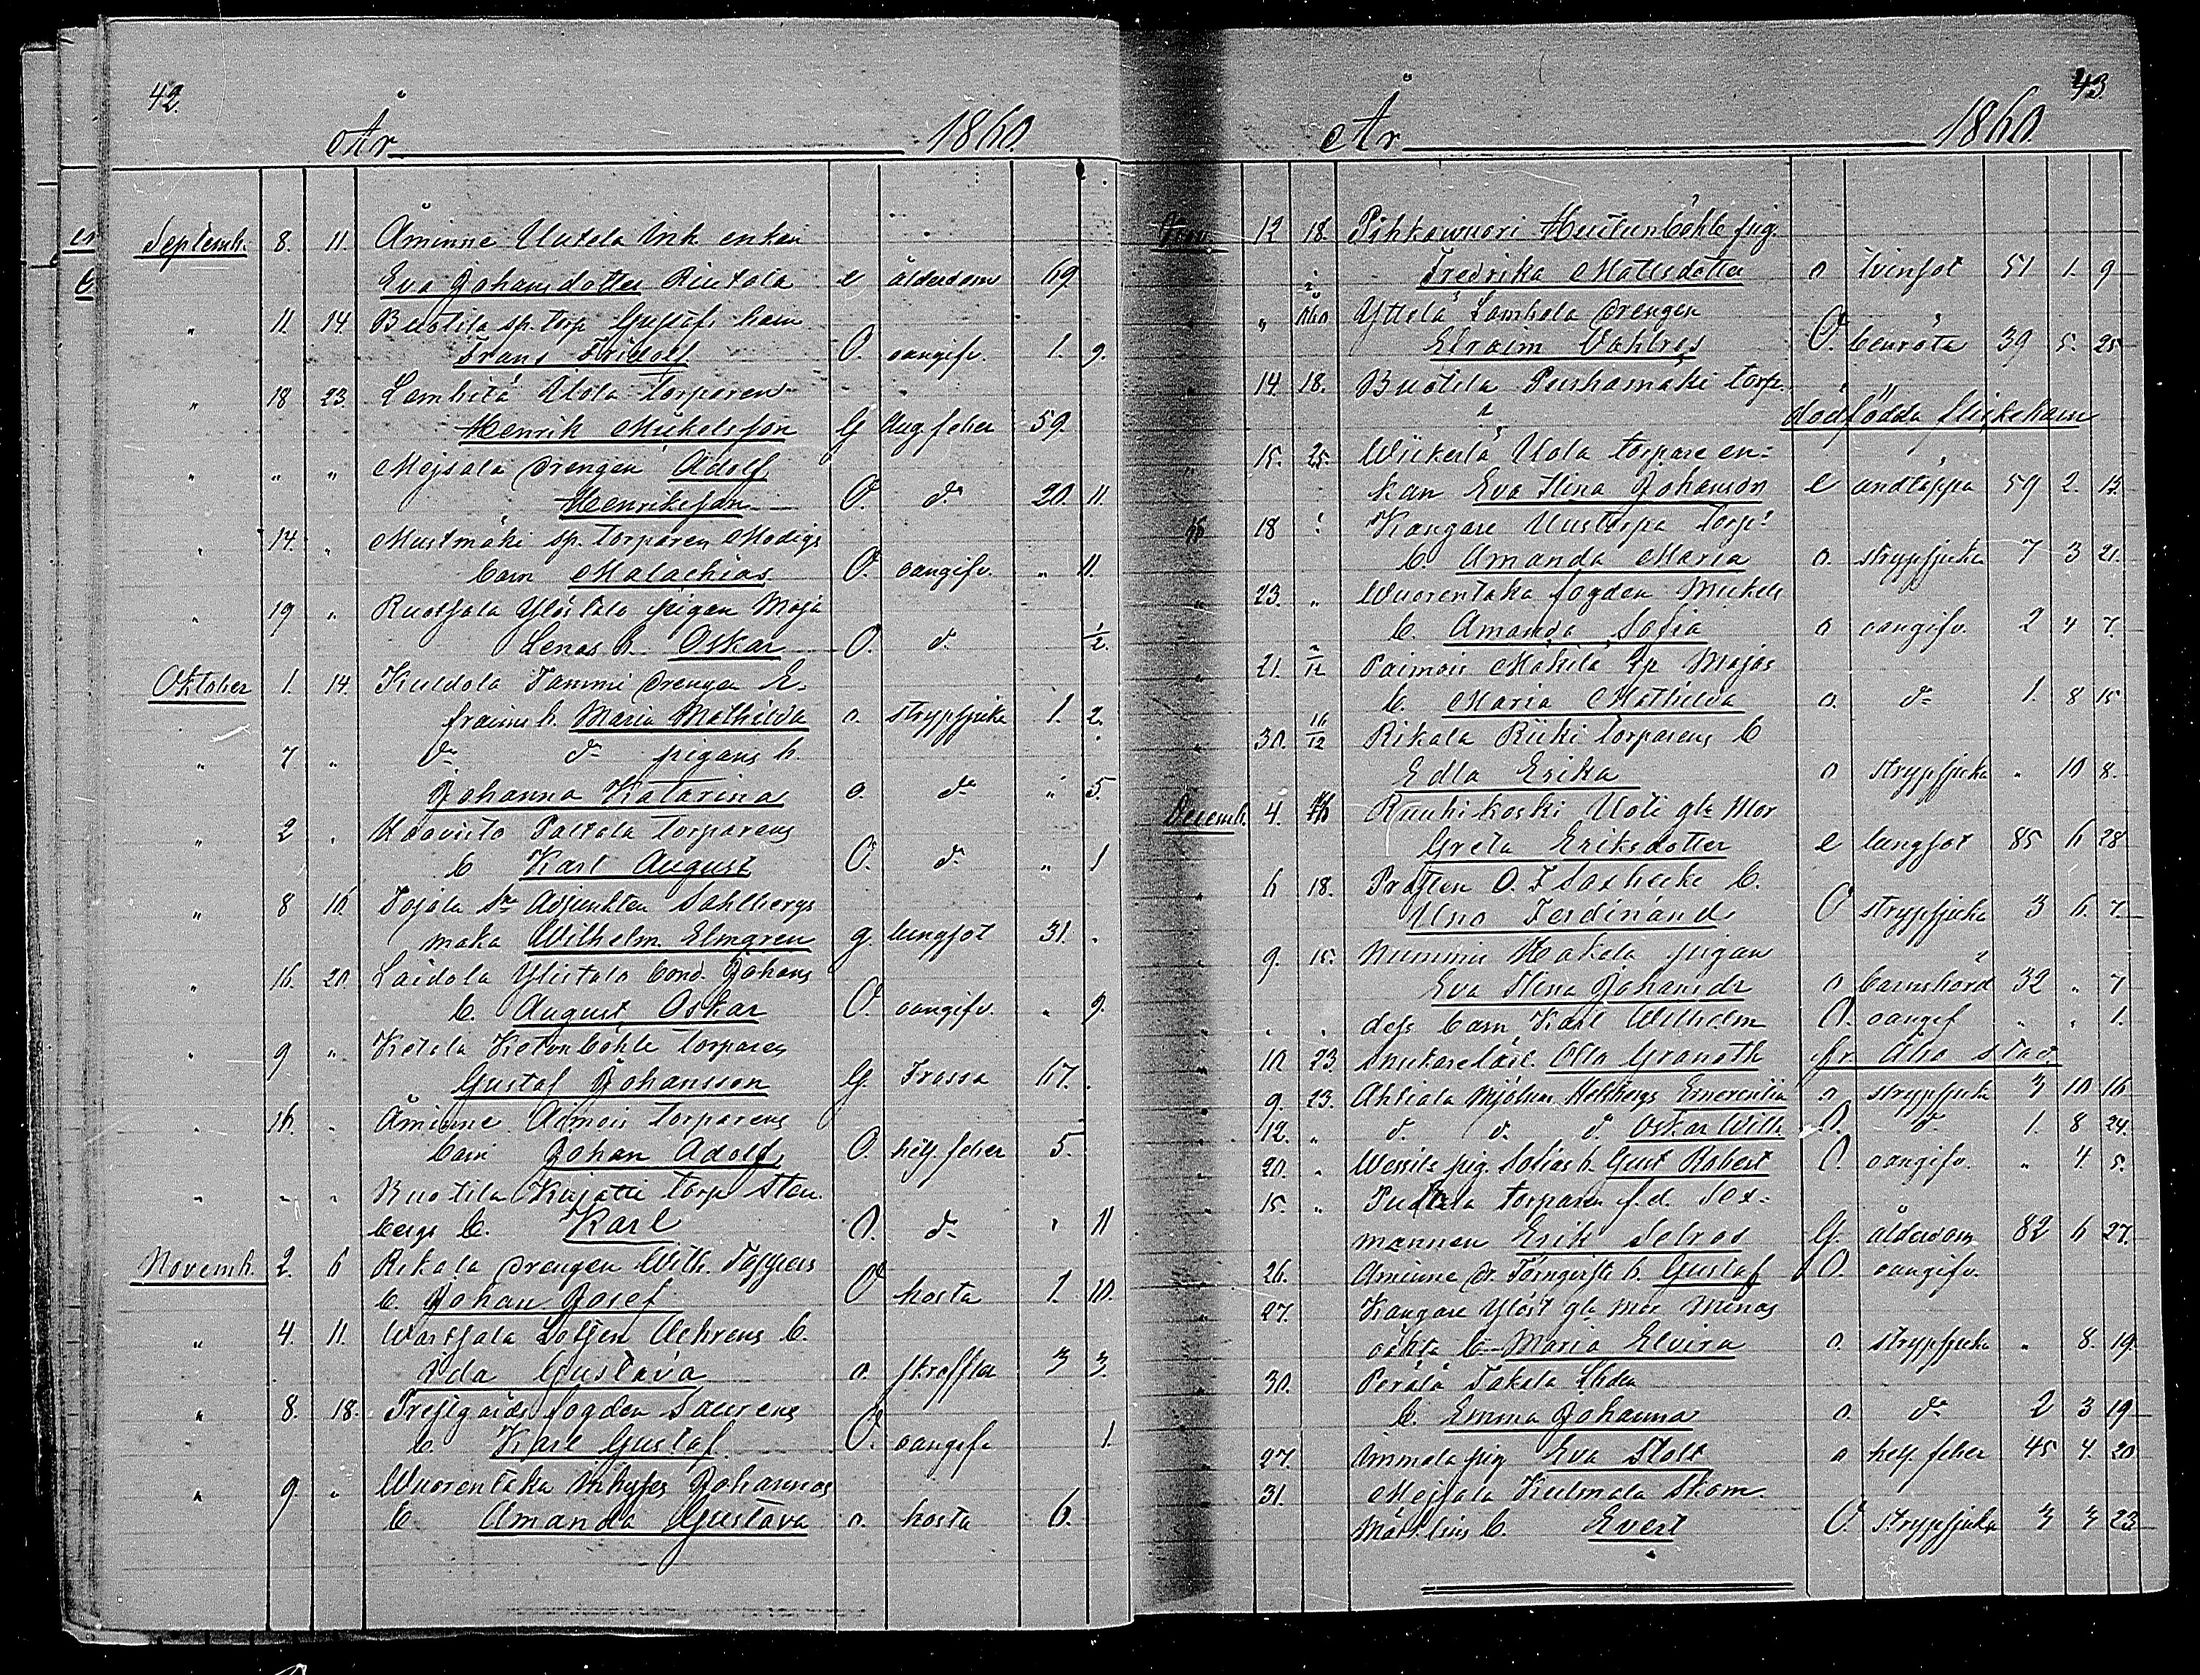 42.
År 1860
Septemb. 8. 11. Åminne Uutela Inh. enkan
Eva Johansdotter Rintola e ålderdom 69
" 11. 14. Buotila sp. torp Gustafs barn
Frans Fridolf O. oangifv. 1. 9.
" 18 23. Lembilä Uola torparen
Henrik Mickelsson G Aug feber 59.
" " " Mejsala drengen Adolf
Henriksson O. do 20. 11.
" 14. " Mustmäki sp. torparen Modigs
barn Malachias O. oangifv. " 11.
" 19 " Ruotsala Ylistalo pigan Maja
Lenas b. Oskar O. do ½
Oktober 1. 14. Kuldola Tammi drengen E-
fraims b. Maria Mathilda o. strypsjuka 1. 2.
" 7 " do do pigans b.
Johanna Katarina o. do " 5.
" 2 " torparens
b Karl August O. do " 1
" 8 16. Adjunkten Sahlbergs
maka Wilhelm. Elmgren g. lungsot 31.
" 16. 20. Laidola Ylistalo bond. Johans
b. August Oskar O. oangifv. " 9.
" 9 " Ketala Ketunböhle torparen
Gustaf Johansson G. Frassa 67.
" 16. " Åminne torparens
barn Johan Adolf O. hetz. feber 5.
" " " Buotila Kujatti torp Sten-
bergs b. Karl O. do " 11
Novemb. 2. 6 Rikala drengen Wilh.
b. Johan Josef O hosta 1. 10.
" 4. 11. Wartsala Lotsen b.
Ida Gustava o. skrofler 3 3.
" 8. 18. fogden
b. Karl Gustaf O. oangifv 1.
" 9. " Wuorentaka Inhyses Johannas
b Amanda Gustava o. hosta 6.
43.
År 1860.
Nov. 12 18. Pihkawuori Huitunböhle pig.
Fredrika Mattsdotter o tvinsot 51 1. 9
" Yttelä Lambola drengen
Efraim Vahlros O. benröta 39 5. 25
14 18. Buotila torp.
dödfödda flickebarn
15. 25. Uola torpare en-
kan Eva Stina Johansdr e andtäppa 59 2. 13.
18 Kangare Uustorpa torp.
b. Amanda Maria o. strypsjuka 7 3 21.
" 23. " Wuorentaka fogden Mickels
b. Amanda Sofia o oangifv. 2 4 7.
" 21. 2/12 Paimois Mäkilä Majas
b. Maria Mathilda o. do 1. 8 15
" 30. 16/12 Rikala Riiki torparens b
Edla Erika o strypsjuka " 10 8.
Decemb. 4. Ruuhikoski Uoti gla Mor
Greta Eriksdotter e lungsot 85 6 28
" 6 18. Prosten O. I b.
Uno Ferdinand O strypsjuka 3 6. 7.
" 9. 15. Nummi Kakola pigan
Eva Stina Johansdr o barnsbörd 32 " 7
" " " dess barn Karl Wilhelm O. oangif " " 1.
" 10 23. Snickarelärl. Otto Granath fr. Åbo stad
" 9. 23. Ahtiala Mjöln. Emerentia o strypsjuka 3 10 16
" 12. " d. d. d. Oskar Wilh. O. d. 1. 8 24.
" 20. " pig. Sofias b. Gust Robert O. oangifv. " 4. 5.
" 15. " torparen f.d. Sex-
mannen Erik Selros G. ålderdom 82 6 27.
" 26. Åminne dr. Törnqvists b. Gustaf O. oangifv.
" 27. Kangare Ylöst. gla mor Minas
oäkta b. Maria Elvira o. strypsjuka " 8. 19.
" 30. Perälä Takala
b. Emma Johanna o. do 2 3 19
" 27. Immala pig Eva Stolt o hetz. feber 45 4. 20
31. Mejsala Kulmala Skom.
b. Evert O. strypsjuka 3 3 23